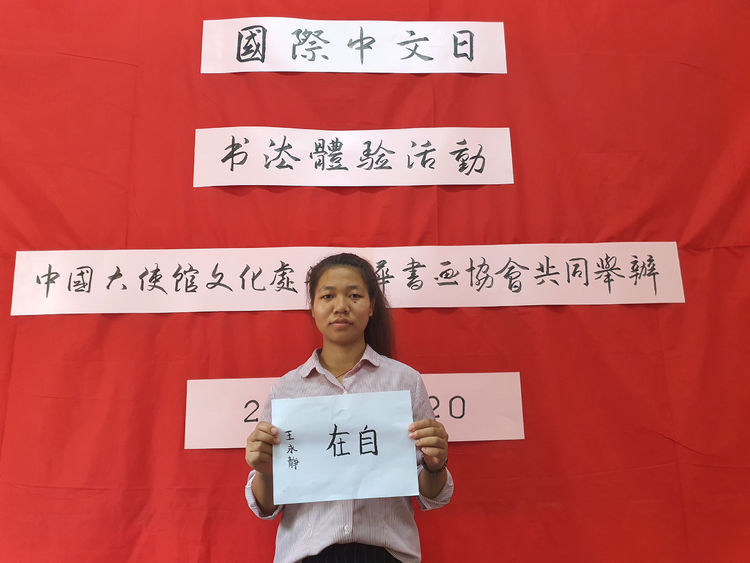 國際中文日
书法體验活動
中國大使馆文化處 華書画協會共同舉辦
2 20
自在
王永靜